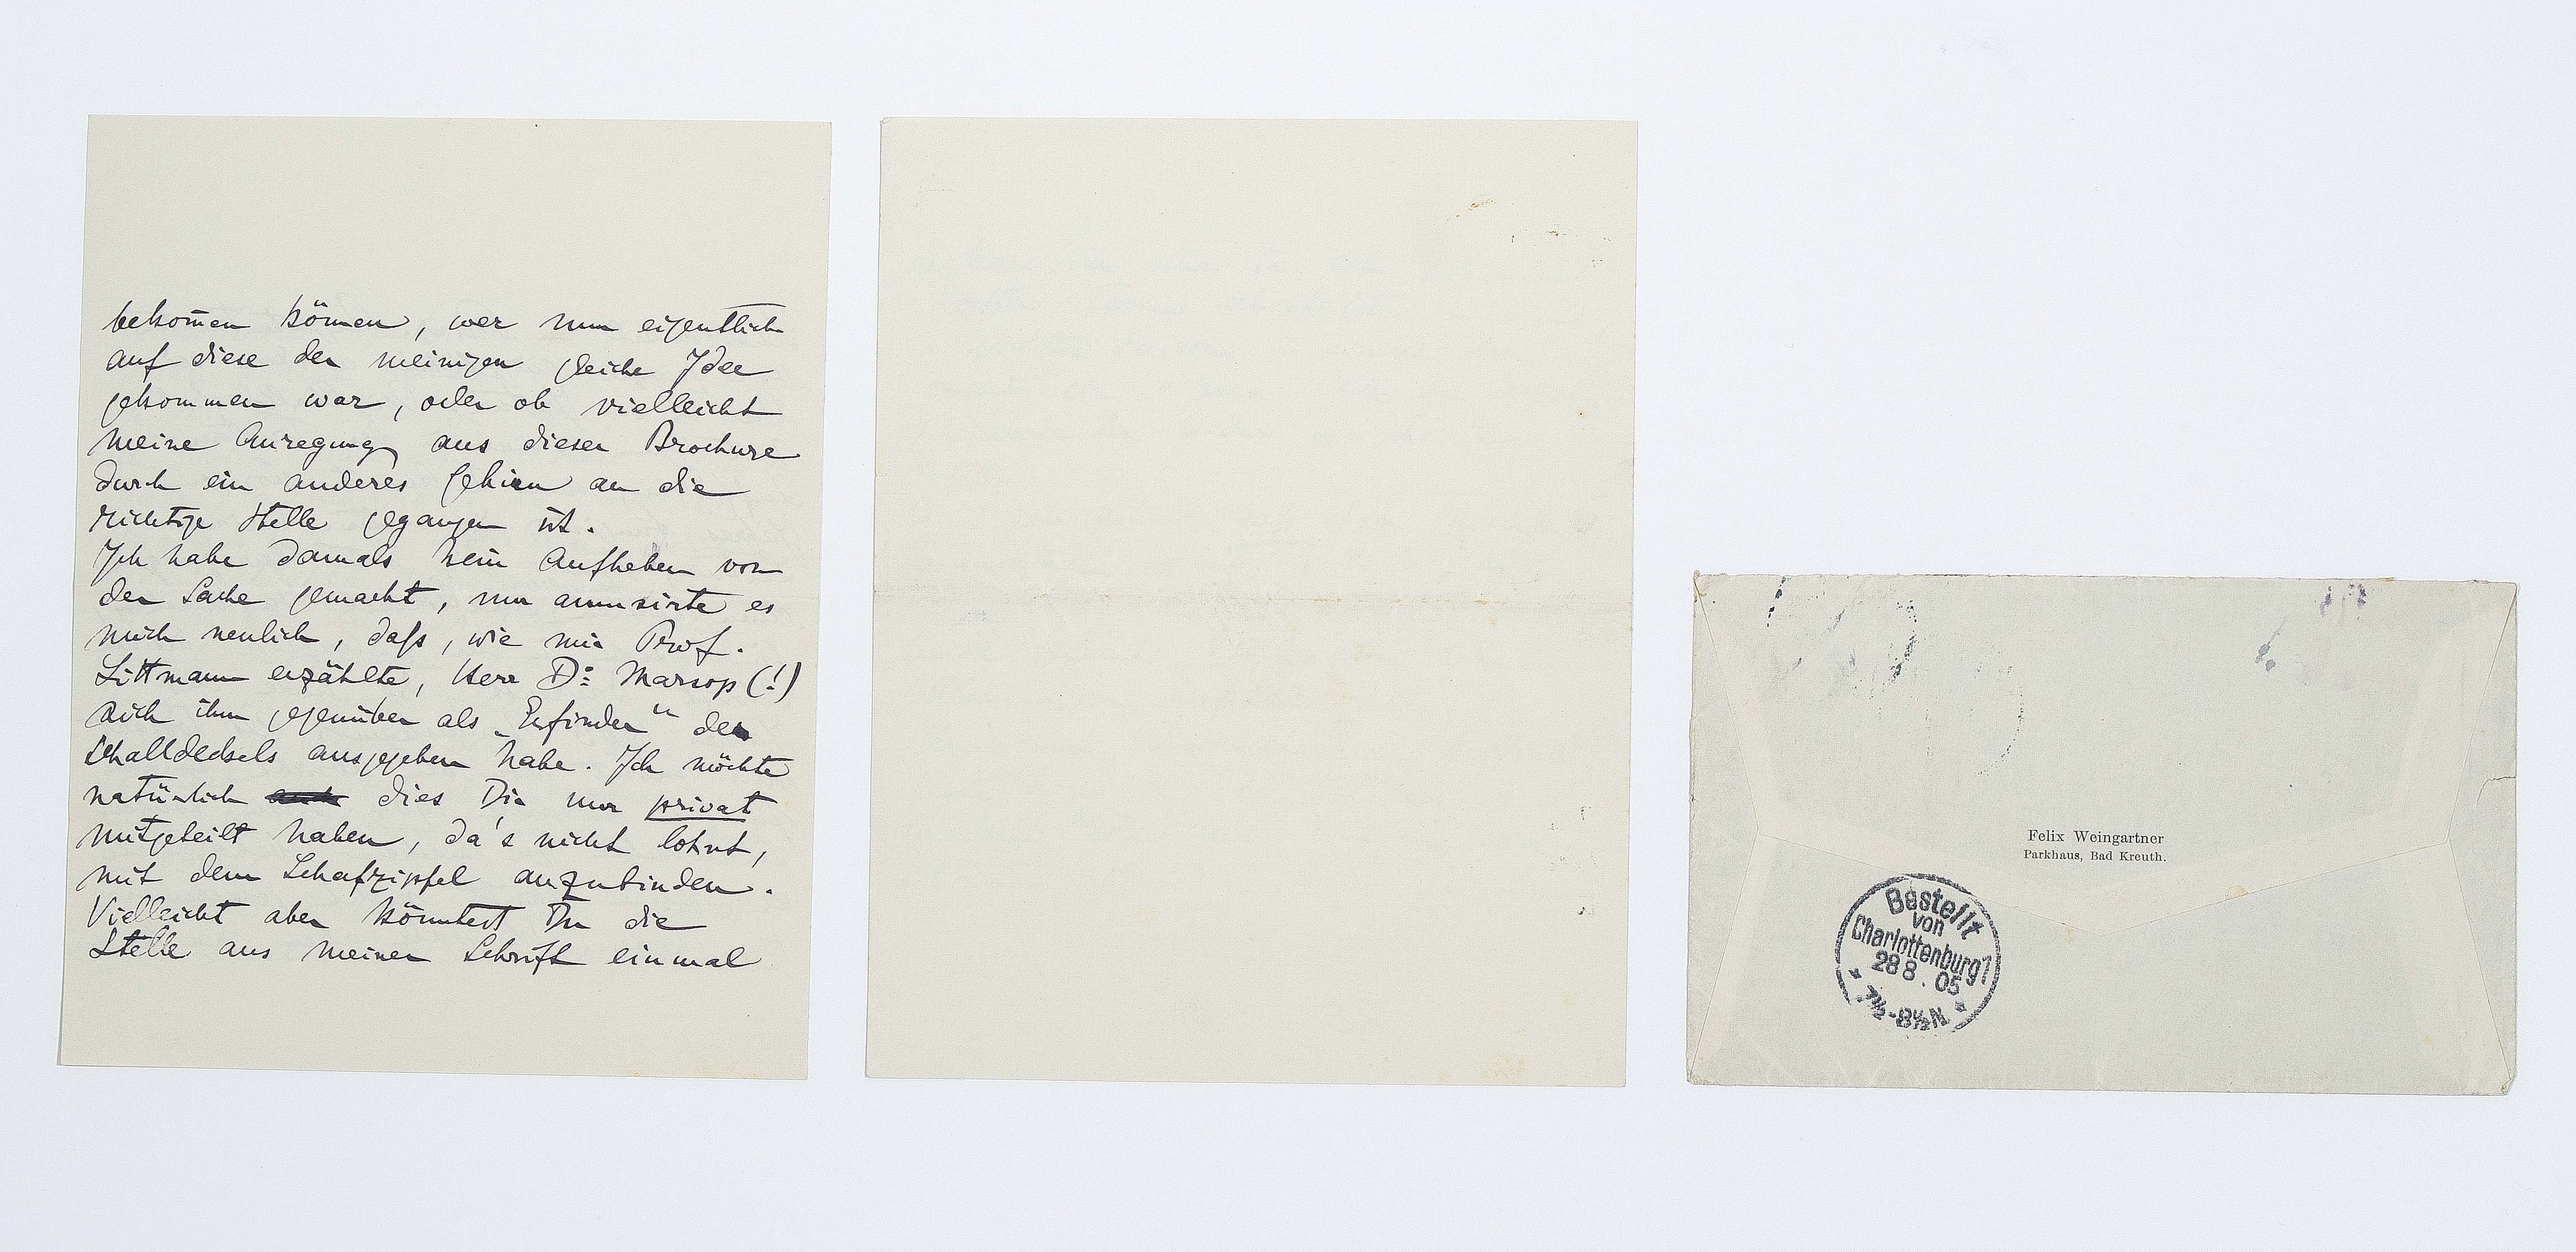 bekom̅en kön̅en, wer nun eigentlich
auf diese der meinigen gleiche Idee
gekommen war, oder ob vielleicht
meine Anregung aus dieser Brochure
durch ein anderes Gehirn an die
richtige Stelle gegangen ist.
Ich habe damals kein Aufheben von
der Sache gemacht, nur amusirte es
mich neulich, daß, wie mir Prof.
Littmann erzählte, Herr Dr. Marsop (!)
sich ihm gegenüber als „Erfinder“ des
Schalldeckels ausgegeben habe. Ich möchte
natürlich dies Dir nur privat
mitgeteilt haben, da's nicht lohnt,
mit dem Schafzipfel anzubinden.
Vielleicht aber könntest Du die
Stelle aus meiner Schrift einmal
Felix Weingartner
Parkhaus, Bad Kreuth.
Bestellt
von
Charlottenburg 1
28 8. 05
7½-8½N